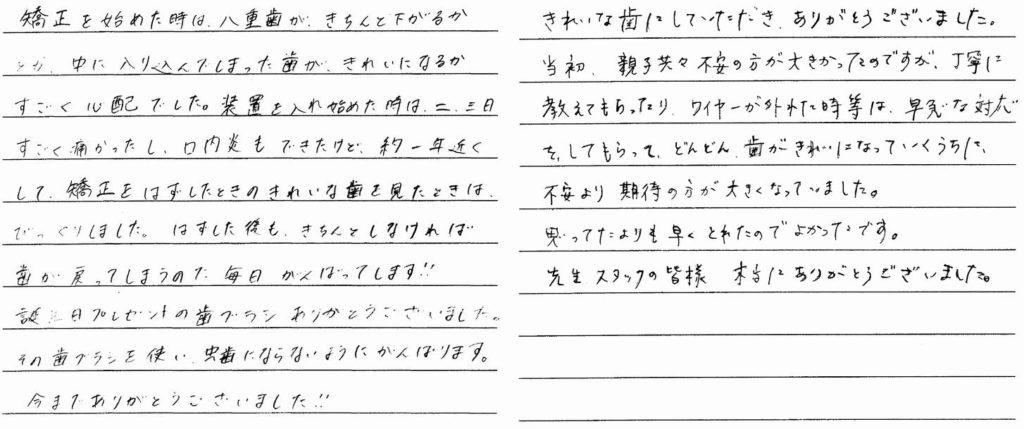 矯正を始めた時は、八重歯が、きちんと下がるか
とか、中に入り込んでしまった歯が、きれいになるか
すごく心配でした。装置を入れ始めた時は、二、三日
すごく痛かったし、口内炎もできたけど、約一年近く
して、矯正をはずしたときのきれいな歯を見たときは、
びっくりしました。はずした後も、きちんとしなければ
歯が戻ってしまうので毎日がんばってします!!
誕生日プレゼントの歯ブラシありがとうございました。
その歯ブラシを使い、虫歯にならないようにがんばります。
今までありがとうございました!!
きれいな歯にしていただき、ありがとうございました。
当初、親子共々不安の方が大きかったのですが、丁寧に
教えてもらったり、ワイヤーが外れた時等は、早急な対応
を、してもらって、どんどん、歯がきれいになっていくうちに、
不安より期待の方が大きくなっていました。
思ってたよりも早くとれたのでよかったです。
先生スタッフの皆様 本当にありがとうございました。